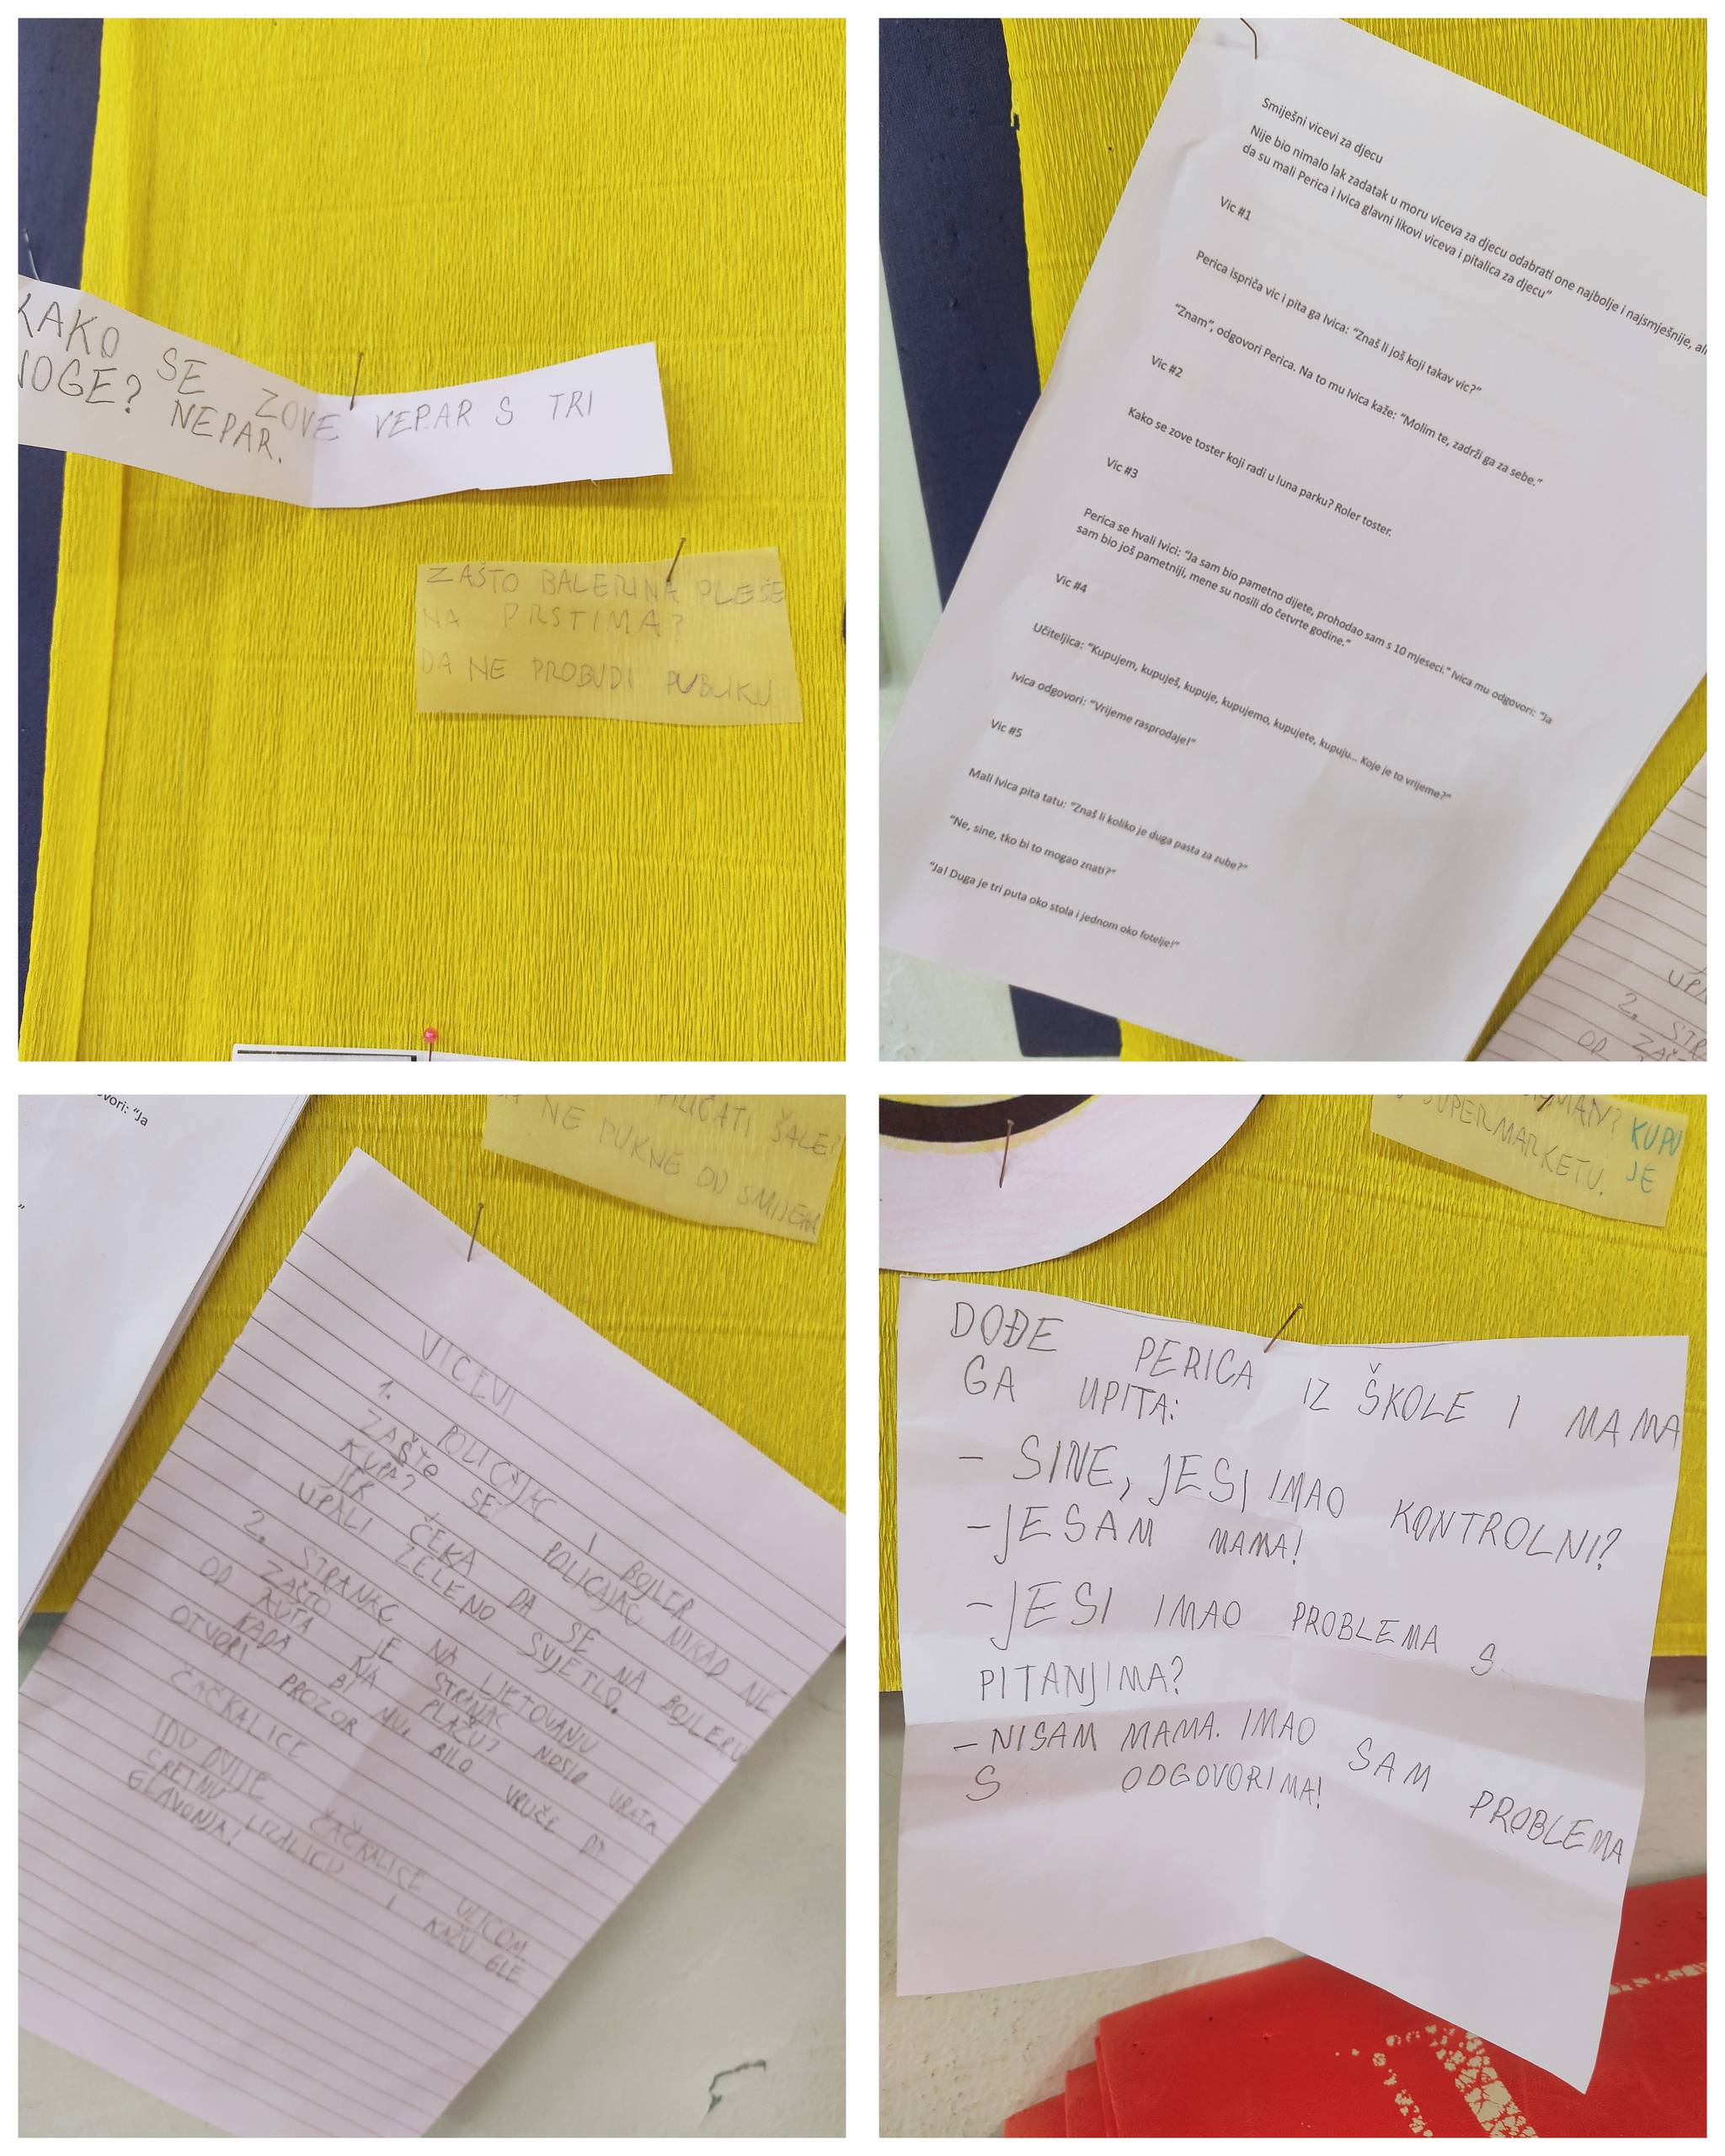 KAKO SE ZOVE VEPAR S TRI
NOGE? NEPAR.
ZAŠTO BALERINA PLEŠE
NA PRSTIMA?
DA NE PROBUDI PUBLIKU
Smiješni vicevi za djecu
Nije bio nimalo lak zadatak u moru viceva za djecu odabrati one najbolje i najsmješnije, ali
da su mali Perica i Ivica glavni likovi viceva i pitalica za djecu"
Vic #1
Perica ispriča vic i pita ga Ivica: "Znaš li još koji takav vic?"
"Znam", odgovori Perica. Na to mu Ivica kaže: "Molim te, zadrži ga za sebe."
Vic #2
Kako se zove toster koji radi u luna parku? Roler toster.
Vic #3
Perica se hvali Ivici: "Ja sam bio pametno dijete, prohodao sam s 10 mjeseci." Ivica mu odgovori: "Ja
sam bio još pametniji, mene su nosili do četvrte godine."
Vic #4
Učiteljica: "Kupujem, kupuješ, kupuje, kupujemo, kupujete, kupuju... Koje je to vrijeme?"
Ivica odgovori: "Vrijeme rasprodaje!"
Vic #5
Mali Ivica pita tatu: "Znaš li koliko je duga pasta za zube?"
"Ne, sine, tko bi to mogao znati?"
"Ja! Duga je tri puta oko stola i jednom oko fotelje!"
2.
OD
vori: "Ja
ŠALE?
NE PUKNE OD SMIJEHA
VICEVI
1. POLICAJAC I BOJLER
ZAŠTO SE POLICAJAC NIKAD NE
KUPA?
JER ČEKA DA SE NA BOJLERU
UPALI ZELENO SVJETLO.
2. STRANAC NA LJETOVANJU
ZAŠTO JE STRANAC NOSIO VRATA
OD AUTA NA PLAŽU?
KADA BI MU BILO VRUĆE DA
OTVORI PROZOR
ČAČKALICE
IDU DVIJE ČAČKALICE ULICOM
SRETNU LIZALICU I KAŽU GLE
GLAVONJA!
KUPU
SUPERMARKETU. JE
DOĐE PERICA IZ ŠKOLE I MAMA
GA UPITA:
- SINE, JESI IMAO KONTROLNI?
- JESAM MAMA!
- JESI IMAO PROBLEMA S
PITANJIMA?
- NISAM MAMA. IMAO SAM PROBLEMA
S ODGOVORIMA!